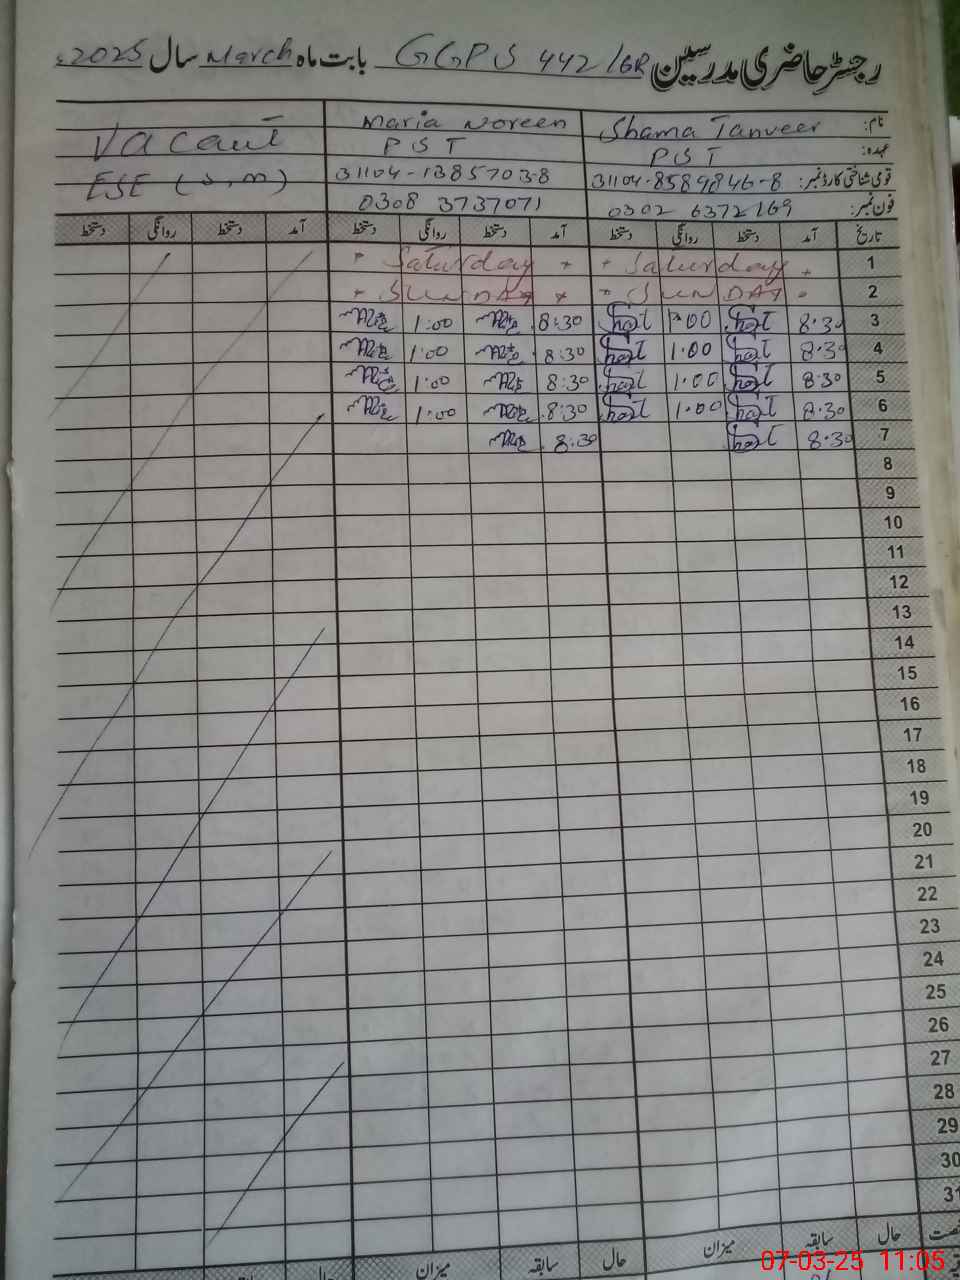 رجسٹر حاضری مدرسین GGPS 442/6R بابت ماہ March سال 2025ء
نام: Shama Tanveer Maria Noreen Vacant
عہدہ: PST PST ESE (S,m)
قومی شناختی کارڈ نمبر: 31104-8589846-8 31104-1385703-8
فون نمبر: 0302 6372169 0308 3737071
تاریخ آمد دستخط روانگی دستخط آمد دستخط روانگی دستخط آمد دستخط روانگی دستخط
1 Saturday Saturday
2 SUNDAY SUNDAY
3 8:30 1:00 8:30 1:00
4 8:30 1:00 8:30 1:00
5 8:30 1:00 8:30 1:00
6 8:30 1:00 8:30 1:00
7 8:30 8:30
8
9
10
11
12
13
14
15
16
17
18
19
20
21
22
23
24
25
26
27
28
29
30
31
حال سابقہ میزان حال سابقہ میزان حال
07-03-25 11:05